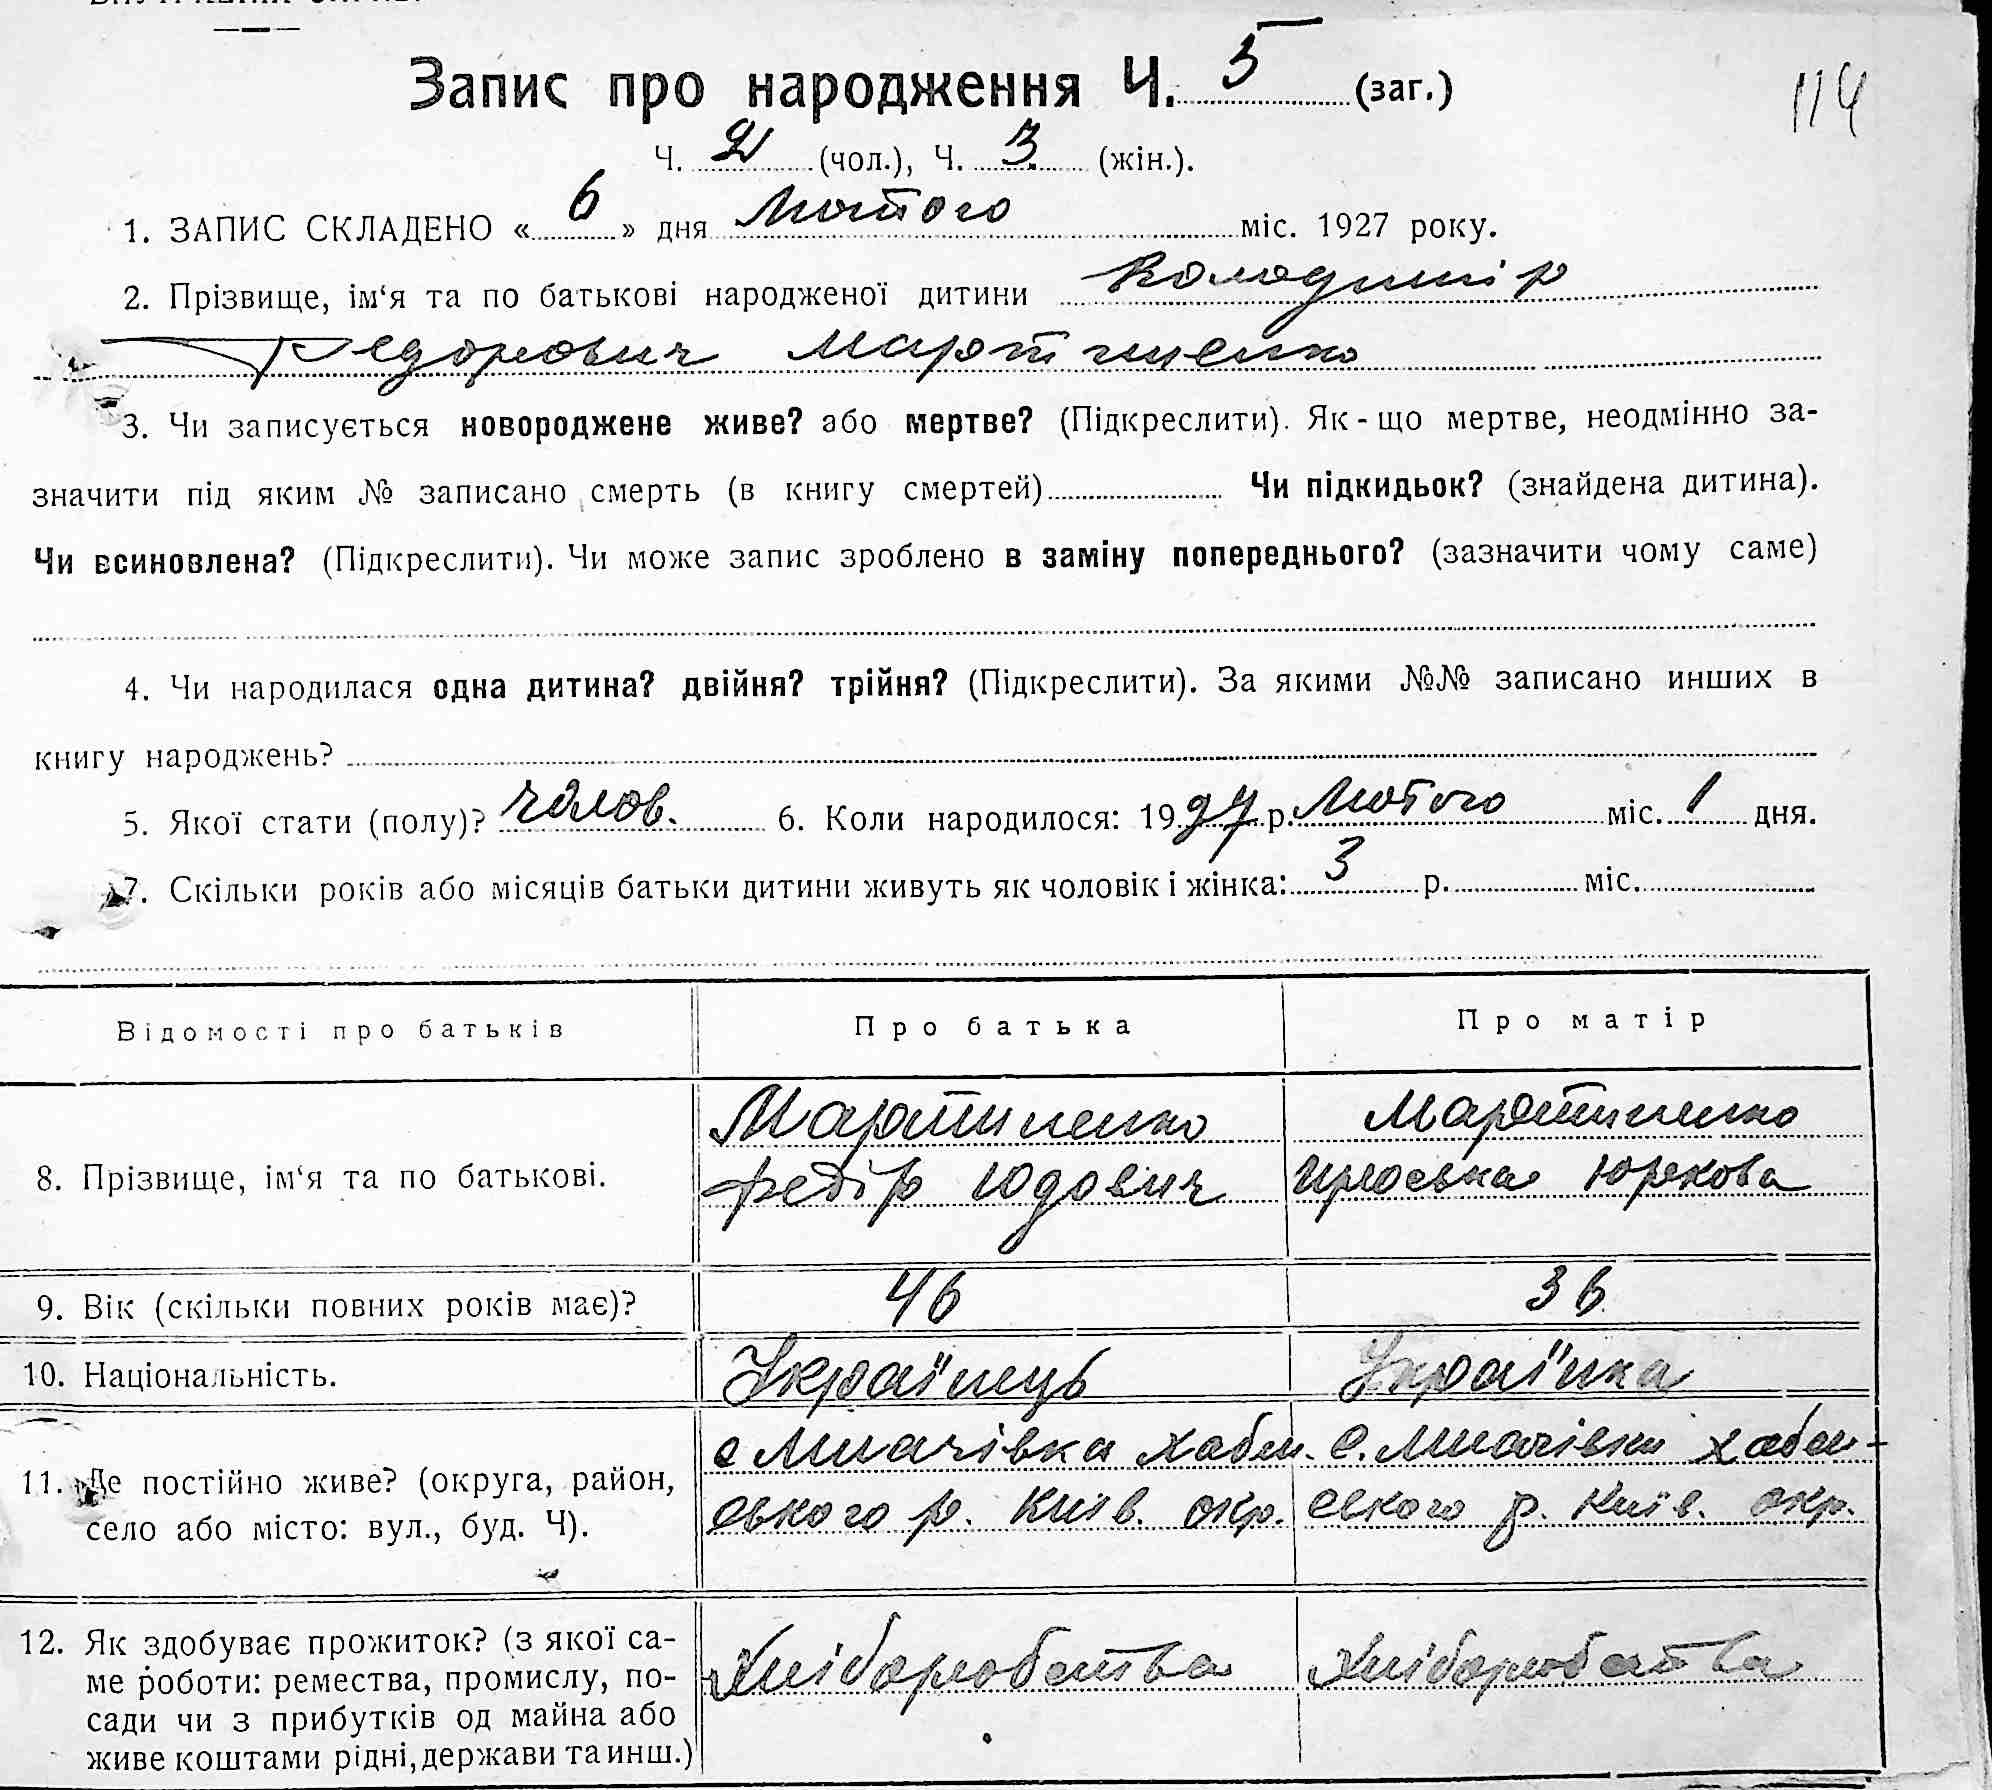 Запис про народження Ч. 5 (заг.)
114
Ч. 2 (чол.), Ч. 3 (жін.).
1. ЗАПИС СКЛАДЕНО « 6 » дня Лютого міс. 1927 року.
2. Прізвище, ім‘я та по батькові народженої дитини Володимір
Федорович Мартиненко
3. Чи записується новороджене живе? або мертве? (Підкреслити). Як-що мертве, неодмінно за-
значити під яким № записано смерть (в книгу смертей) Чи підкидьок? (знайдена дитина).
Чи всиновлена? (Підкреслити). Чи може запис зроблено в заміну попереднього? (зазначити чому саме)
4. Чи народилася одна дитина? двійня? трійня? (Підкреслити). За якими №№ записано инших в
книгу народжень?
5. Якої стати (полу)? чолов. 6. Коли народилося: 1927 р. Лютого міс. 1 дня.
7. Скільки років або місяців батьки дитини живуть як чоловік і жінка: 3 р. міс.
Відомості про батьків Про батька Про матір
8. Прізвище, ім‘я та по батькові. Мартиненко Мартиненко
Федір Юдович Юркова
9. Вік (скільки повних років має)? 46 36
10. Національність. Українець Українка
11. Де постійно живе? (округа, район, село або місто: вул., буд. Ч).
с Мпачівка Хабен- с. Мпачівка Хабен-
ського р. Київ. окр. ського р. Київ. окр.
12. Як здобуває прожиток? (з якої са-
ме роботи: ремества, промислу, по-
сади чи з прибутків од майна або
живе коштами рідні, держави та инш.)
Хліборобства Хліборобства